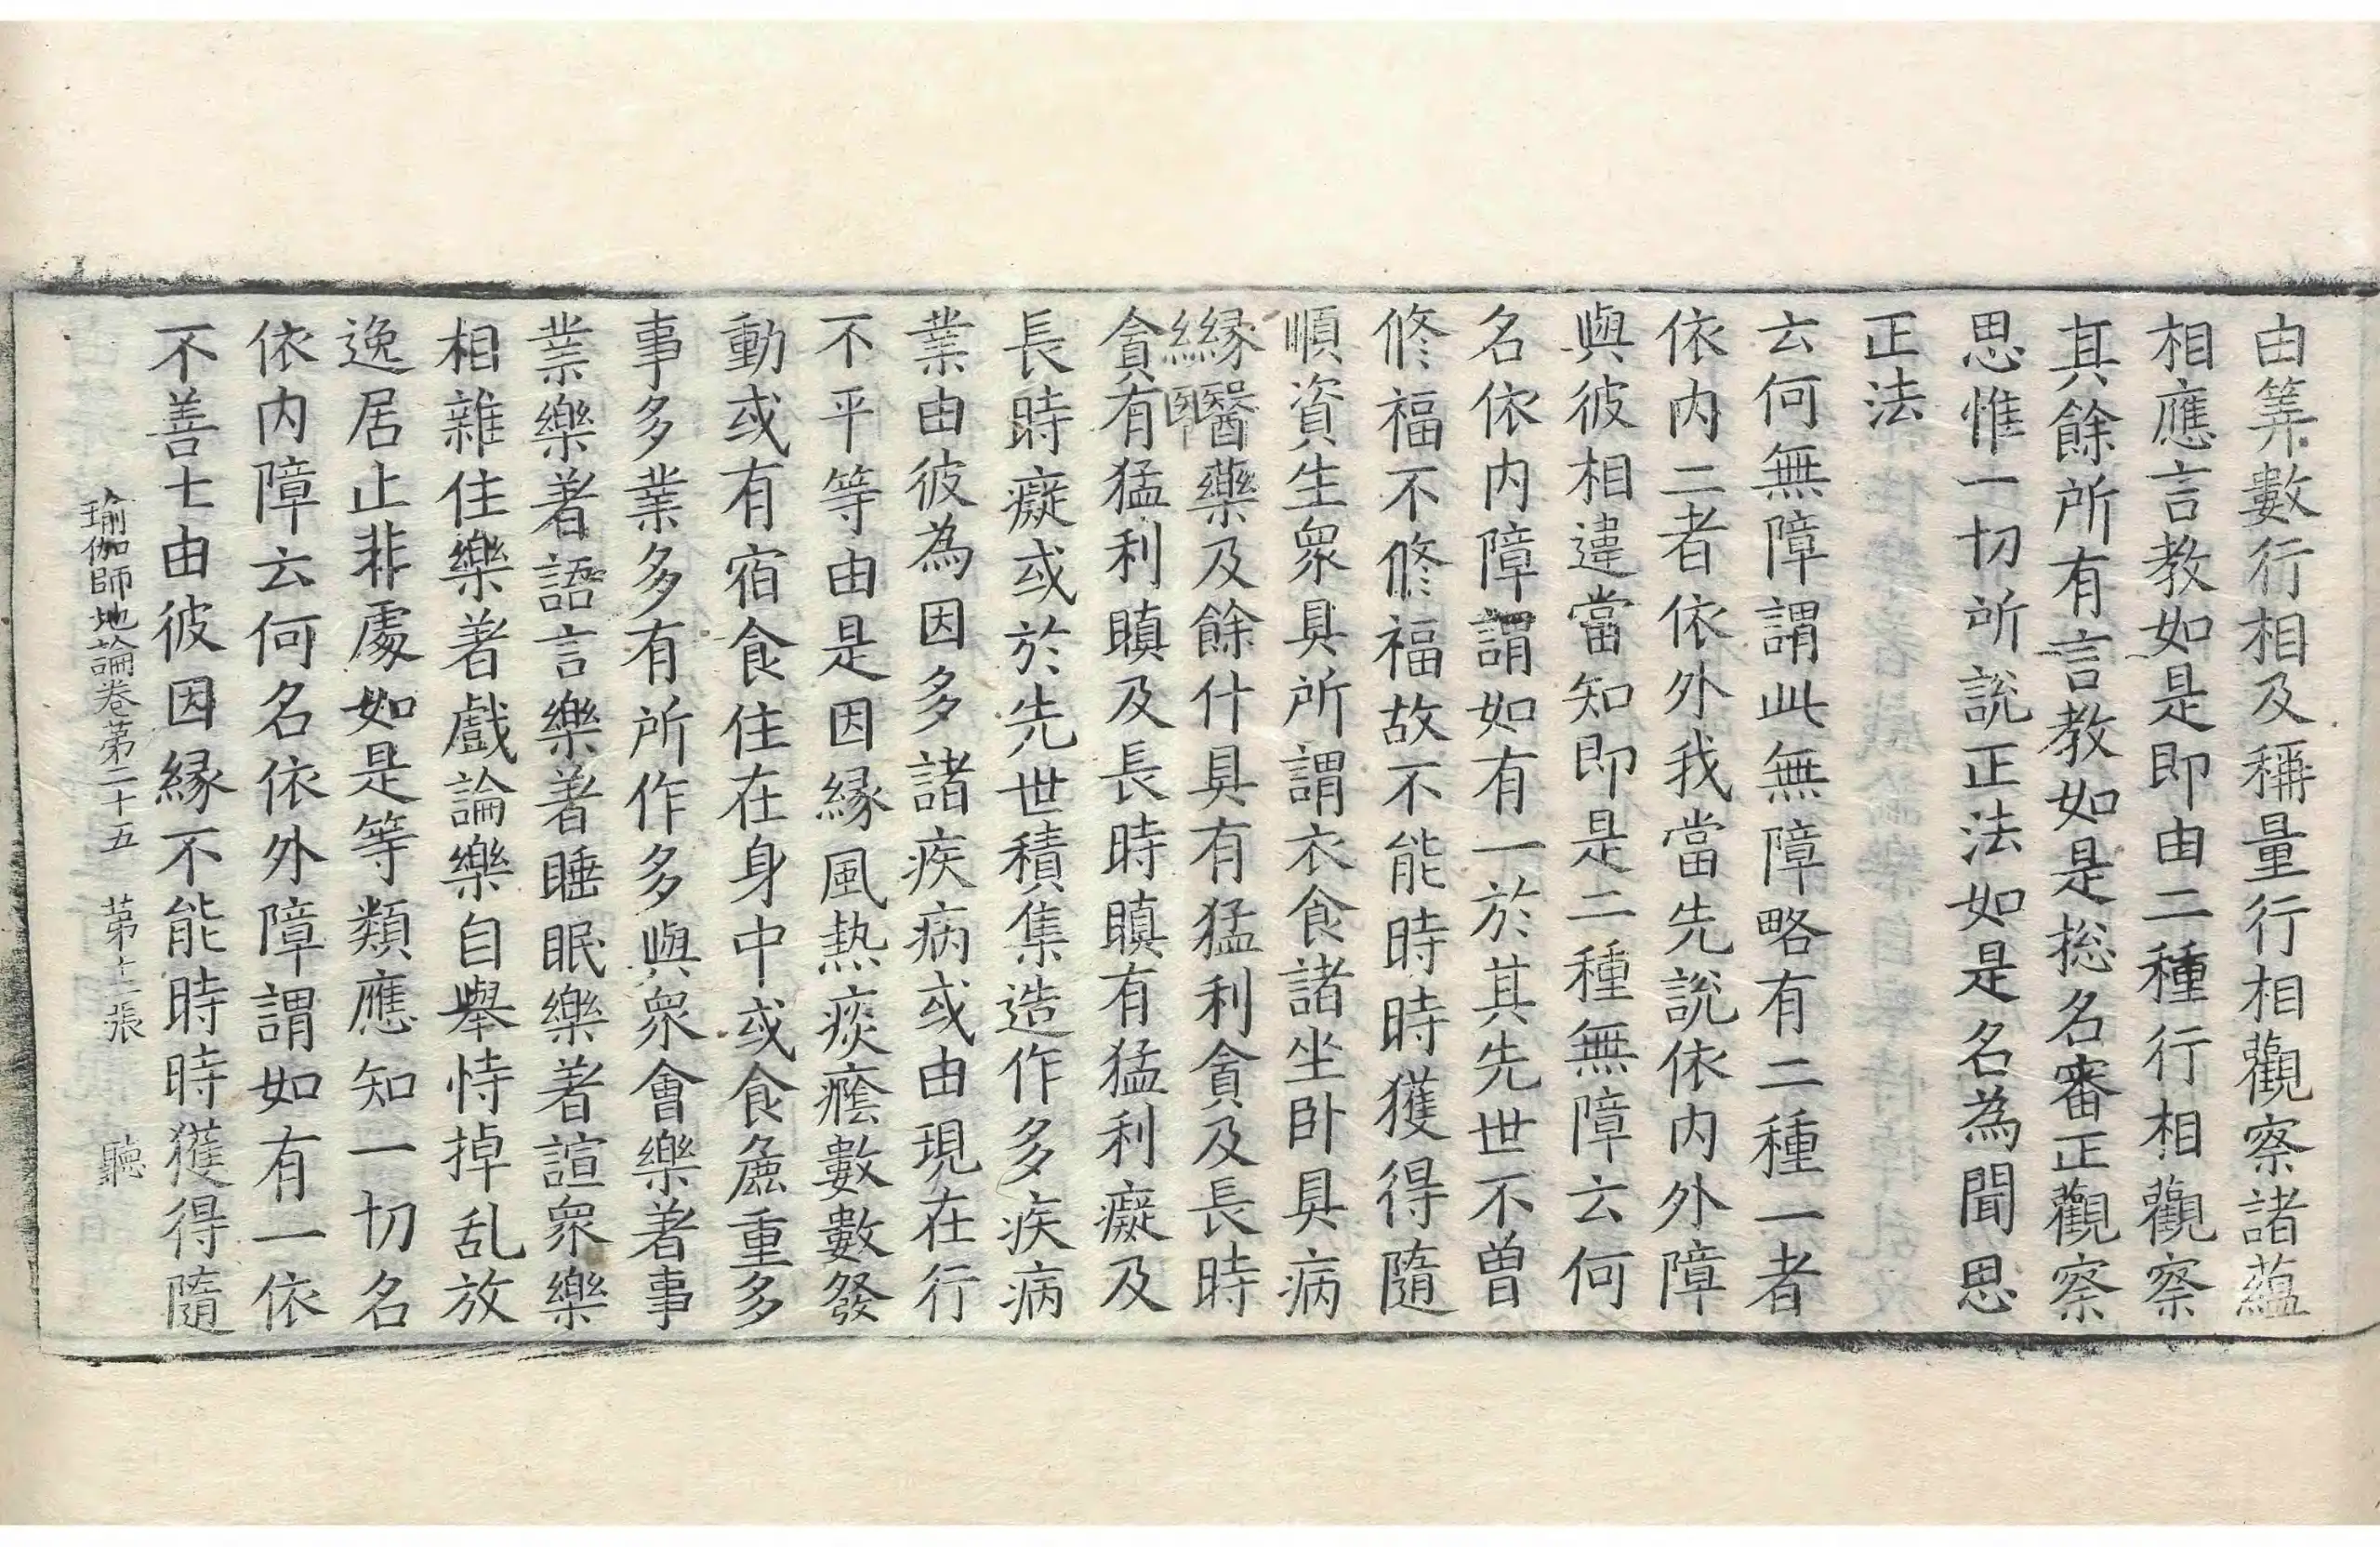 由筭數行相及稱量行相觀察諸蘊
相應言教如是即由二種行相觀察
其餘所有言教如是揔名審正觀察
思惟一切所說正法如是名為聞思
正法
云何無障謂此無障略有二種一者
依内二者依外我當先說依内外障
與彼相違當知即是二種無障云何
名依内障謂如有一於其先世不曽
修福不修福故不能時時獲得隨
順資生眾具所謂衣食諸坐卧具病
縁醫藥及餘什具有猛利貪及長時
貪有猛利瞋及長時瞋有猛利癡及
長時癡或於先世積集造作多疾病
業由彼為因多諸疾病或由現在行
不平等由是因縁風熱痰癊數數發
動或有宿食住在身中或食麁重多
事多業多有所作多與眾會樂著事
業樂著語言樂著睡眠樂著諠眾樂
相雜住樂著戲論樂自舉恃掉乱放
逸居止非處如是等類應知一切名
依内障云何名依外障謂如有一依
不善士由彼因縁不能時時獲得隨
瑜伽師地論卷第二十五 第十二張 聽